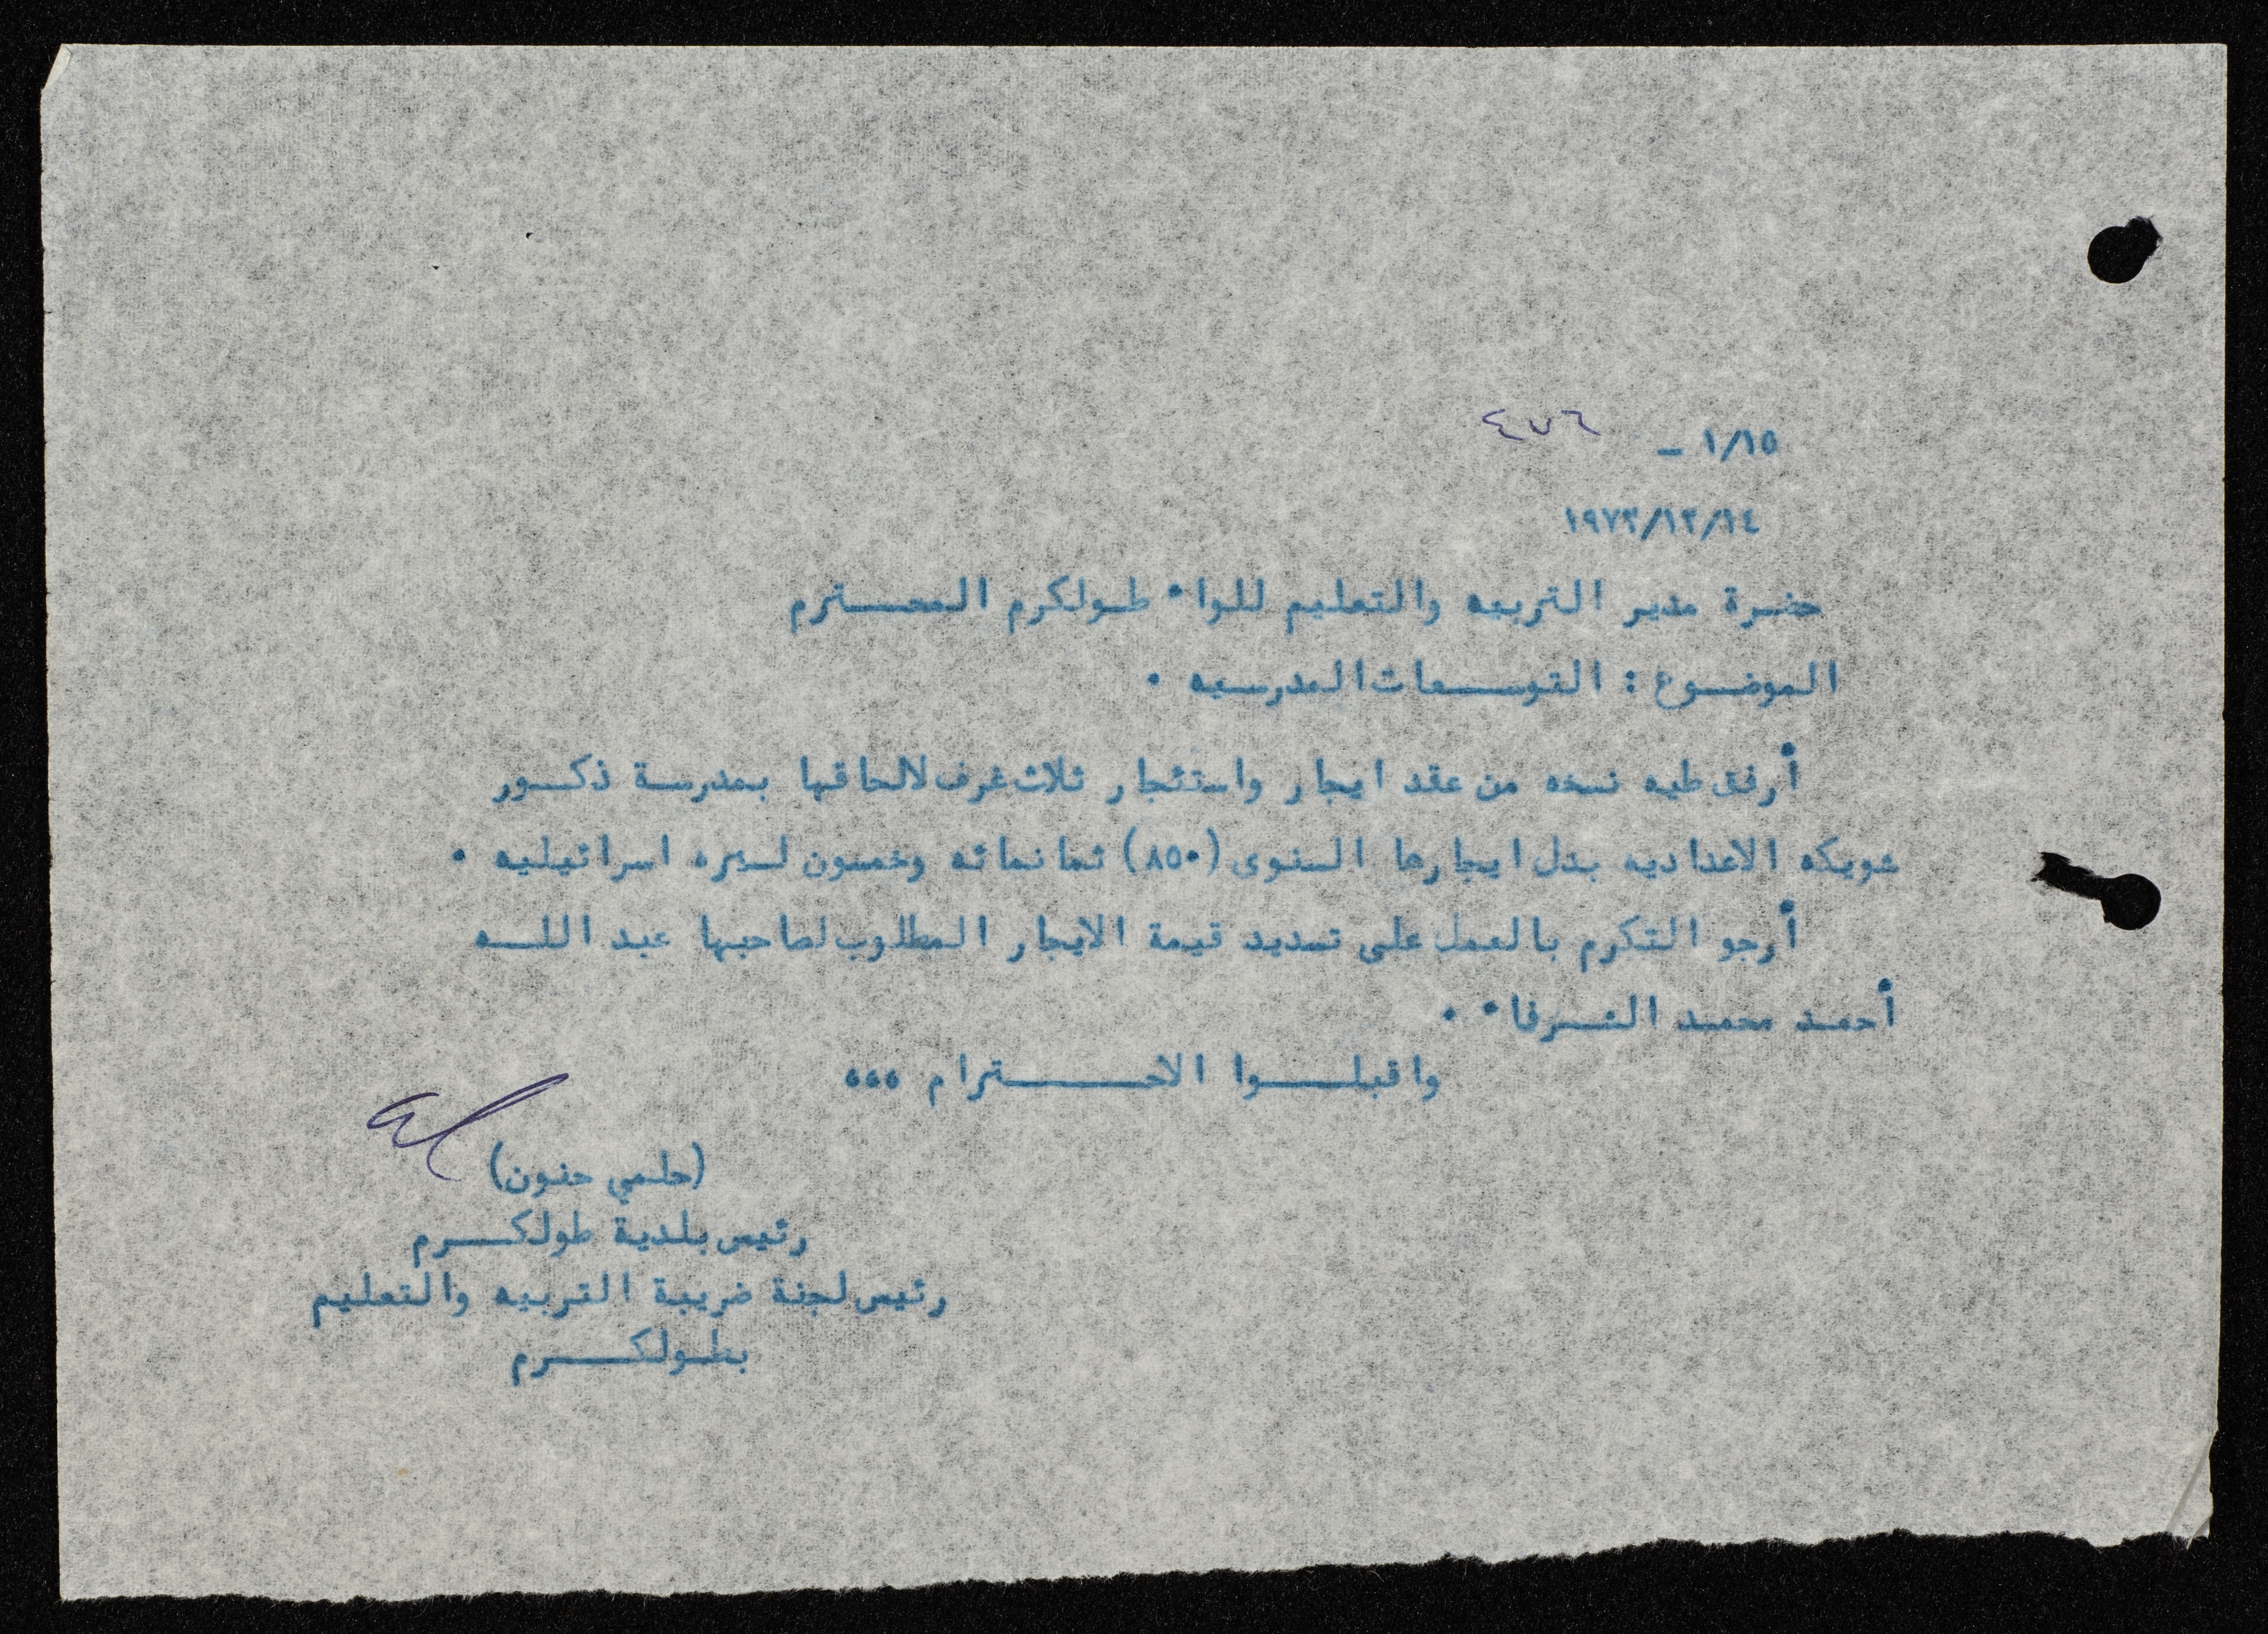 ١/١٥ – ٤٧٦
١٩٧٣/١٢/١٤
حضرة مدير التربيه والتعليم للواء طولكرم المحــترم
الموضوع : التوســعات المدرسيه ٠
أرفق طيه نسخه من عقد ايجار واستئجار ثلاث غرف لالحاقها بمدرسة ذكــور
شويكه الاعداديه بدل ايجارها السنوى (٨٥٠) ثمانمائه وخمسون لــيره اسرائيليه ٠
أرجو التكرم بالعمل على تسديد قيمة الايجار المطلوب لصاحبها عبد اللــه
أحمـد محمـد الشـرفاء ٠
واقبلــــوا الاحـــــترام ٥٥٥
(حلـمي حنـون)
رئيس بلـدية طولكــــرم
رئيس لجنة ضريبة التربيه والتعليم
بطـولكــــرم